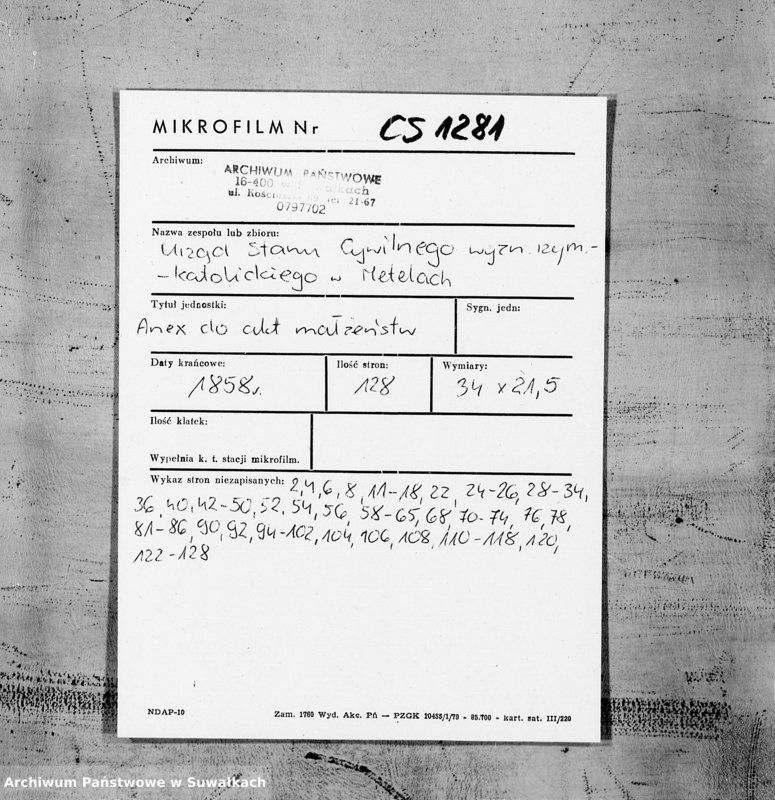 MIKROFILM Nr CS 1281
Archiwum:
ARCHIWUM PAŃSTWOWE
16-400 w
ul. tel 21-67
0797702
Nazwa zespołu lub zbioru:
Urząd Stanu Cywilnego wyzn. rzym.-
-katolickiego w Metelach
Tytuł jednostki: Sygn. jedn:
Anex do akt małżeństw
Daty krańcowe: Ilość stron: Wymiary:
1858r. 128 34 x 21,5
Ilość klatek:
Wypełnia k. t. stacji mikrofilm.
Wykaz stron niezapisanych: 2,4,6,8,11-18,22,24-26,28-34,
36,40,42-50,52,54,56,58-65,68,70-74,76,78,
81-86,90,92,94-102,104,106,108,110-118,120,
122-128
NDAP-10 Zam. 1760 Wyd. Akc. Pń — PZGK 20455/I/79 - 85.700 - kart. sat. III/220
Archiwum Państwowe w Suwałkach